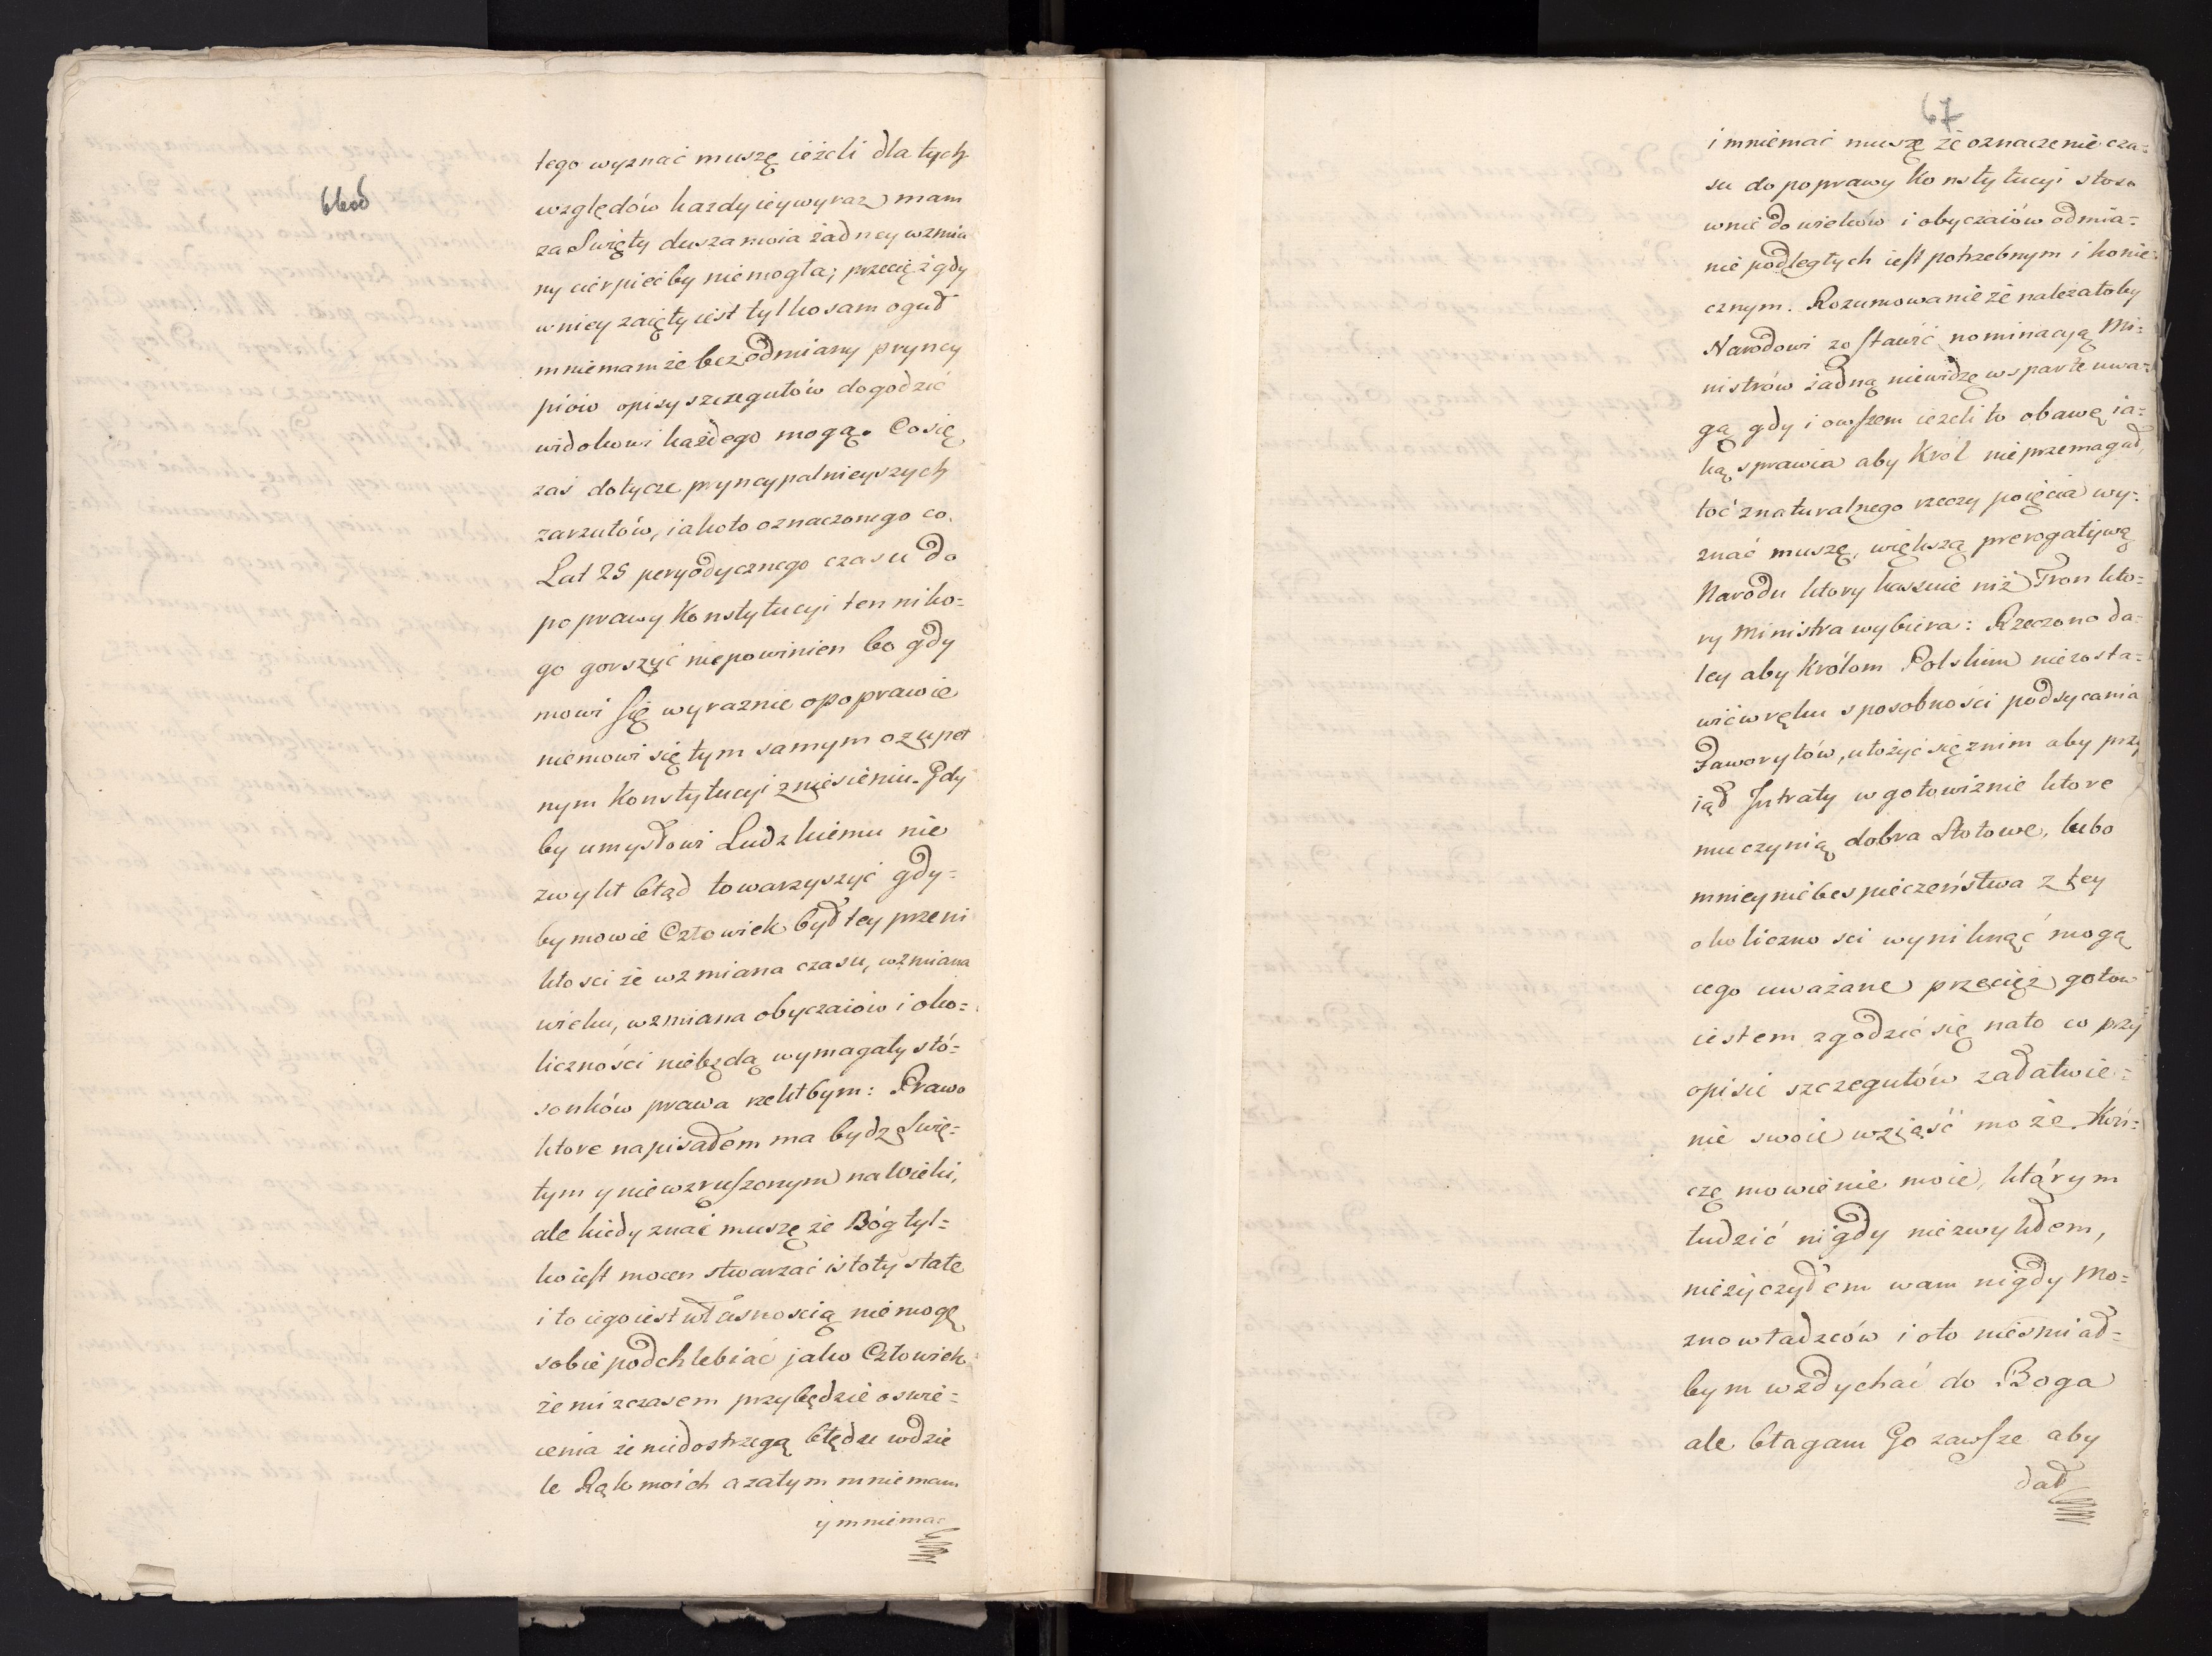 66od
tego wyznać muszę ieżeli dla tych
względów kazdy iey wyraz mam
za Swięty dusza moia żadney wzmia
ny cierpieć by niemogła; przecięż gdy
w niey zaięty iest tylko sam oguł
mniemam że bez odmiany pryncy
piów opisy szczegułów dogodzić
widokowi każdego mogą. Co się
zaś dotycze pryncypalnieyszych
zarzutów, iakoto oznaczonego co
Lat 25 peryodycznego czasu do
poprawy Konstytucyi ten niko=
go gorszyć niepowinien bo gdy
mowi się wyraznie o poprawie
niemowi się tym samym o zupeł
nym Konstytucyi zniesieniu. Gdy
by umysłowi Ludzkiemu nie
zwykł błąd towarzyszyć gdy=
by mowie Człowiek był tey przeni
kłosci że wzmiana czasu, wzmiana
wieku, wzmiana obyczaiów i oko=
liczności niebędą wymagały stó=
sonków prawa rzekłbym: Prawo
ktore napisałem ma bydz Swię=
tym y niewzruszonym na Wieki,
ale kiedy znać muszę że Bóg tyl=
ko iest mocen stwarzać istoty stałe
i to iego iest własnoscią niemogę
sobie podchlebiać jako Człowiek
że mi zczasem przybędzie oswie=
cenia że niedostrzegą błędu wdzie
le Rąk moich a zatym mniemam
y mniemać
67
i mniemać muszę że oznaczenie cza=
su do poprawy Konstytucyi stoso
wnie do wieków i obyczaiów odmia=
nie podległych iest potrzebnym i konie=
cznym. Rozumowanie że należałoby
Narodowi zostawić nominacyą Mi=
nistrów żadną niewidzę wsparte uwa=
gą gdy i owszem ieżeli to obawę ia=
ką sprawia aby Król nie przemagał,
toć znaturalnego rzeczy poięcia wy=
znać muszę, większą prerogatywę
Narodu ktory kassuie niż Tron kto=
ry Ministra wybiera: Rzeczono da=
ley aby Królom Polskim niezosta=
wić w ręku sposobności podsycania
Faworytów, ułożyć się znim aby przy
iął Intraty w gotowiznie ktore
mu czynią dobra Stołowe, lubo
mniey niebespieczeństwa z tey
okoliczności wyniknąć mogą
iego uważane przecięż gotow
iestem zgodzić się na to co przy
opisie szczegułów załatwie=
nie swoie wziąść może. Koń=
czę mowienie moie, którym
łudzić nigdy niezwykłem,
nieżyczyłem wam nigdy Mo=
znowładzców i oto niesmiał=
bym wzdychać do Boga
ale błagam Go zawsze aby
dał